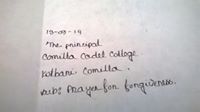 13-03-19
The principal
Comilla Cadet College
Kotbari Comilla.
Sub: Prayer for forgiveness.